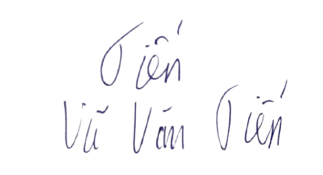 Tiến
Vũ Văn Tiến